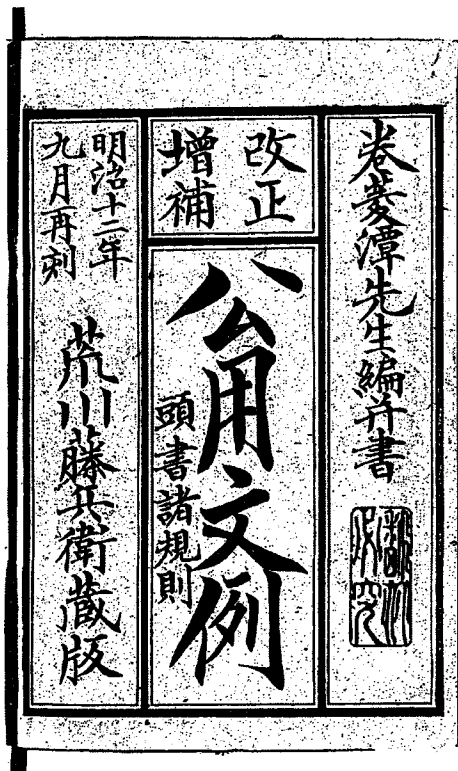 巻菱潭先生編并書
改正
增補
公用文例
頭書諸規則
明治十二年
九月再刻
荒川藤兵衛蔵版